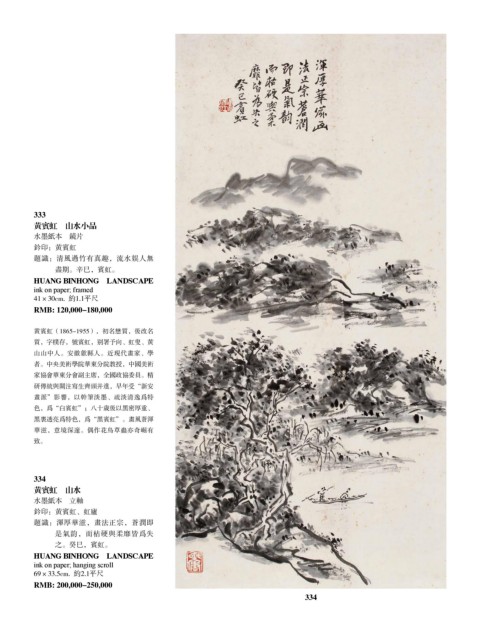 渾厚華滋畫
法正宗蒼潤
即是氣韵
而枯硬與柔
靡皆為失之
癸巳賓虹
333
黃賓虹　山水小品
水墨紙本　鏡片
鈐印：黃賓虹
題識：清風過竹有真趣，流水娛人無
盡期。辛巳，賓虹。
HUANG BINHONG　LANDSCAPE
ink on paper; framed
41×30cm. 約1.1平尺
RMB: 120,000–180,000
黃賓虹（1865-1955），初名懋質，後改名
質，字樸存，號賓虹，別署予向、虹叟、黃
山山中人。安徽歙縣人。近現代畫家、學
者。中央美術學院華東分院教授，中國美術
家協會華東分會副主席，全國政協委員。精
研傳統與關注寫生齊頭并進，早年受“新安
畫派”影響，以幹筆淡墨、疏淡清逸爲特
色，爲“白賓虹”；八十歲後以黑密厚重、
黑裏透亮爲特色，爲“黑賓虹”。畫風蒼渾
華滋，意境深邃。偶作花鳥草蟲亦奇崛有
致。
334
黃賓虹　山水
水墨紙本　立軸
鈐印：黃賓虹、虹廬
題識：渾厚華滋，畫法正宗，蒼潤即
是氣韵，而枯硬與柔靡皆爲失
之。癸巳，賓虹。
HUANG BINHONG　LANDSCAPE
ink on paper; hanging scroll
69×33.5cm. 約2.1平尺
RMB: 200,000–250,000
334